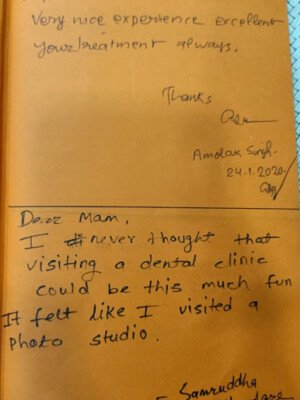 Very nice experience excellent
your treatment always.
Thanks
Amolak Singh.
24.1.2020
Dear Mam,
I never thought that
visiting a dental clinic
could be this much fun
It felt like I visited a
photo studio.
Samruddha